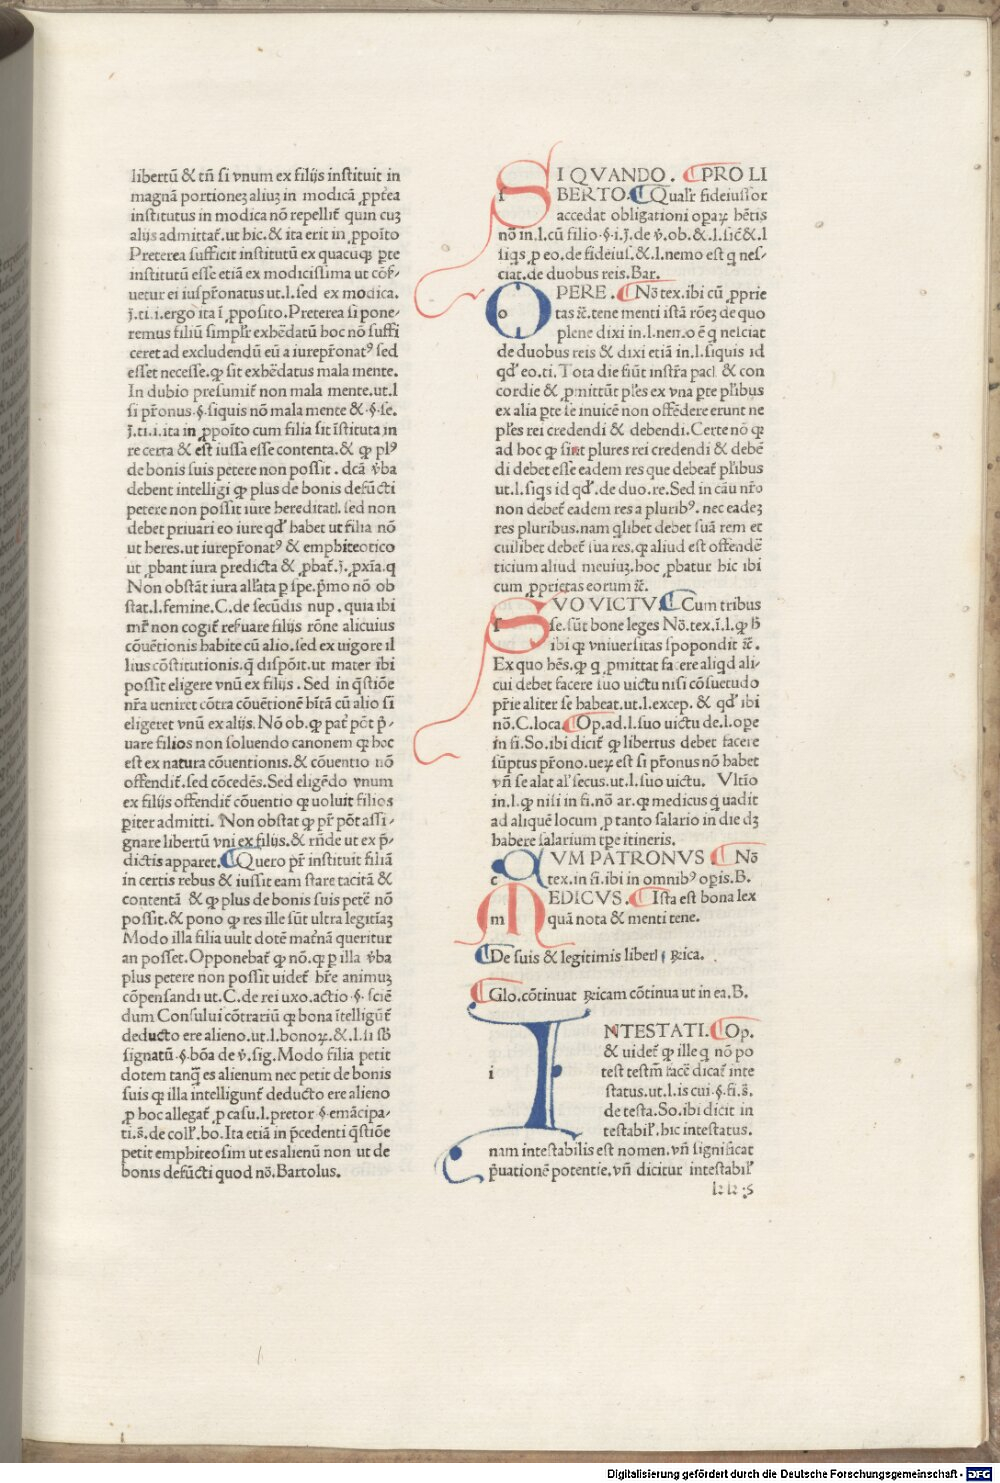 libertū & tñ si vnum ex filijs instituit in
magnā portionez aliuz in modicā ꝓpt̄ea
institutus in modica nō repellit̄ quin cuz
alijs admittat̄. ut hic. & ita erit in ꝓpoīto
Preterea sufficit institutū ex quacuqꝫ ꝑte
institutū esse etiā ex modicissima ut cōf-
uetur ei iuspr̄onatus ut. l. sed ex modica.
J. ti. i. ergo ita ī ꝓposito. Preterea si pone-
remus filiū simplr̄ exhēdatū hoc nō suffi
ceret ad excludendū eū a iurepr̄onatꝰ sed
esset necesse. ꝙ sit exhēdatus mala mente.
In dubio presumit̄ non mala mente. ut. l
si pr̄onus. §. siquis nō mala mente &. §. se.
J. ti. i. ita in ꝓpoīto cum filia sit īstituta in
re certa & est iussa esse contenta. & ꝙ plꝰ
de bonis suis petere non possit. dcā v̄ba
debent intelligi ꝙ plus de bonis defūcti
petere non possit iure hereditatl. sed non
debet priuari eo iure qd' habet ut filia nō
ut heres. ut iurepr̄onatꝰ & emphiteotico
ut ꝓbant iura predicta & ꝓbat̄. J. ꝓxīa. q
Non obstāt iura all'ata ꝑ spe. p̄mo nō ob
stat. l. femine. C. de secūdis nup. quia ibi
mr̄ non cogit̄ reseruare filijs rōne alicuius
cōuētionis habite cū alio. sed ex uigore il
lius cōstitutionis. q̄ dispōit. ut mater ibi
possit eligere vnū ex filijs. Sed in q̄stiōe
nr̄a ueniret cōtra cōuētionē hītā cū alio si
eligeret vnū ex alijs. Nō ob. ꝙ pat̄ pōt p̄-
uare filios non soluendo canonem ꝙ hoc
est ex natura cōuentionis. & cōuentio nō
offendit̄. sed cōcedēs. Sed eligēdo vnum
ex filijs offendit̄ cōuentio ꝙ uoluit filios
ꝑiter admitti. Non obstat ꝙ pr̄ pōt assi-
gnare libertū vni ex filijs. & rn̄de ut ex p̄-
dictis apparet. Quero pr̄ instituit filiā
in certis rebus & iussit eam stare tacitā &
contentā & ꝙ plus de bonis suis petē nō
possit. & pono ꝙ res ille sūt ultra legitiaz
Modo illa filia uult dotē mat̄nā queritur
an posset. Opponebat̄ ꝙ nō. ꝙ ꝑ illa v̄ba
plus petere non possit uidet̄ hr̄e animuz
cōpensandi ut. C. de rei uxo. actio. §. sciē
dum Consului cōtrariū ꝙ bona ītelligūt̄
deducto ere alieno. ut. l. bonoꝝ. &. l. si sb̄
signatū. §. bōa de v̄. sig. Modo filia petit
dotem tanq̄ es alienum nec petit de bonis
suis ꝙ illa intelligunt̄ deducto ere alieno
ꝓ hoc allegat̄ ꝓ casu. l. pretor §. emācipa-
ti. s̄. de coll'. bo. Ita etiā in p̄cedenti q̄stiōe
petit emphiteosim ut es alienū non ut de
bonis defūcti quod nō. Bartolus.
SI QVANDO. PRO LI
BERTO. Qualr̄ fideiussor
accedat obligationi opaꝝ hētis
nō in. l. cū filio. §. i. J. de v̄. ob. &. l. sic̄ &. l
siqs ꝓ eo. de fideius. &. l. nemo est q nes-
ciat. de duobus reis. Bar.
OPERE. Nō tex. ibi cū ꝓprie
tas ē. tene menti istā rōez de quo
plene dixi in. l. nemo ē q nesciat
de duobus reis & dixi etiā in. l. siquis id
qd' eo. ti. Tota die fiūt instr̄a pacl. & con
cordie & ꝓmittūt ples ex vna ꝑte pl'ibus
ex alia ꝑte se inuicē non offēdere erunt ne
ples rei credendi & debendi. Certe nō ꝙ
ad hoc ꝙ sint plures rei credendi & debē
di debet esse eadem res que debeat̄ pl'ibus
ut. l. siqs id qd'. de duo. re. Sed in cāu nr̄o
non debet̄ eadem res a pluribꝰ. nec eadez
res pluribus. nam qlibet debet suā rem et
cuilibet debet̄ sua res. ꝙ aliud est offendē
ticium aliud meuiuz. hoc ꝓbatur hic ibi
cum ꝓprietas eorum ē.
SVO VICTV. Cum tribus
se. sūt bone leges Nō. tex. ī. l. ꝙ h̄
ibi ꝙ vniuersitas spopondit ē.
Ex quo hēs. ꝙ q ꝓmittat facere aliqd ali-
cui debet facere suo uictu nisi cōsuetudo
pr̄ie aliter se habeat. ut. l. excep. & qd' ibi
nō. C. loca. Op. ad. l. suo uictu de. l. ope
in fi. So. ibi dicit̄ ꝙ libertus debet facere
sūptus pr̄ono. ueꝝ est si pr̄onus nō habet
vn̄ se alat al' secus. ut. l. suo uictu. Vltīo
in. l. ꝙ nisi in fi. nō ar. ꝙ medicus q uadit
ad aliquē locum ꝓ tanto salario in die dꝫ
habere salarium tpe itineris.
QVM PATRONVS Nō
tex. in fi. ibi in omnibꝰ opis. B.
MEDICVS. Ista est bona lex
quā nota & menti tene.
De suis & legitimis liberl Rica.
Glo. cōtinuat Ricam cōtinua ut in ea. B.
INTESTATI. Op.
& uidet̄ ꝙ ille q nō po
test testm̄ facē dicat̄ inte
status. ut. l. is cui. §. fi. s̄.
de testa. So. ibi dicit in
testabil'. hic intestatus.
nam intestabilis est nomen. vn̄ significat
p̄uationē potentie. vn̄ dicitur intestabil'
kk 5
Digitalisierung gefördert durch die Deutsche Forschungsgemeinschaft - DFG